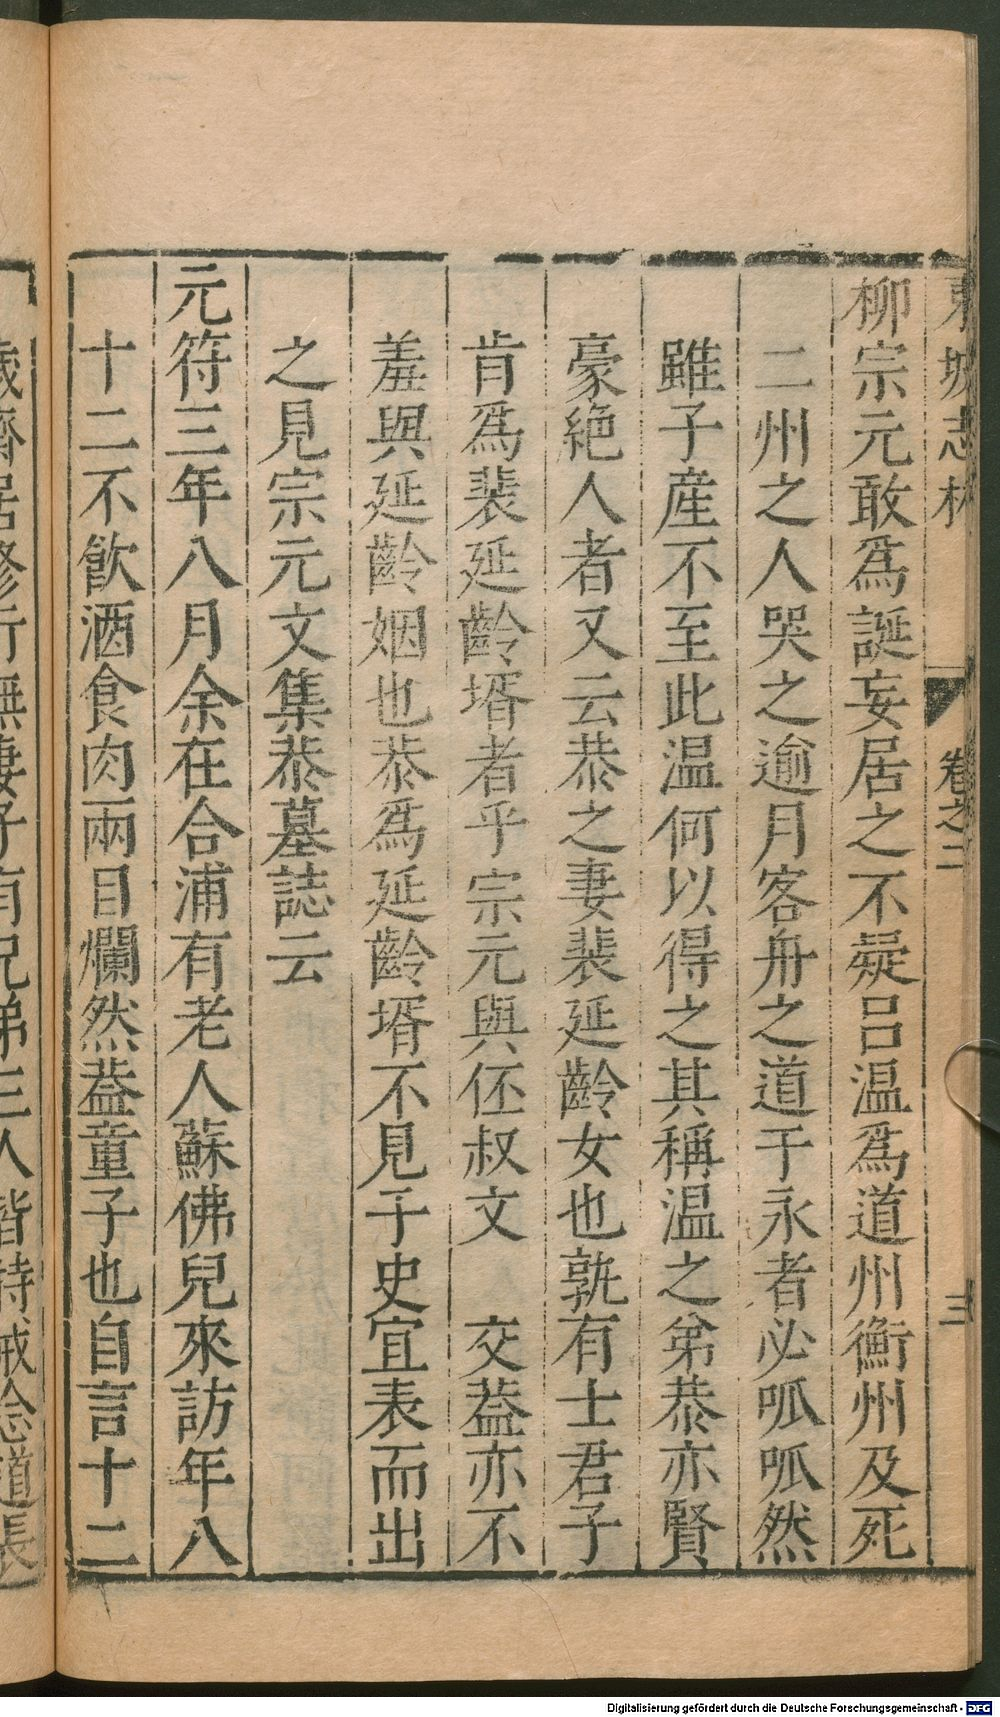 東坡志林
卷之二
三
柳宗元敢爲誕妄居之不疑吕温爲道州衡州及死
二州之人哭之逾月客舟之道于永者必呱呱然
雖子産不至此温何以得之其稱温之弟恭亦賢
豪絶人者又云恭之妻裴延齡女也孰有士君子
肯爲裴延齡壻者乎宗元與伾叔文　交葢亦不
羞與延齡姻也恭爲延齡壻不見于史宜表而出
之見宗元文集恭墓誌云
元符三年八月余在合浦有老人蘇佛兒來訪年八
十二不飲酒食肉兩目爛然葢童子也自言十二
歲齋居修行無妻子有兄弟三人皆持戒念道長
Digitalisierung gefördert durch die Deutsche Forschungsgemeinschaft - DFG